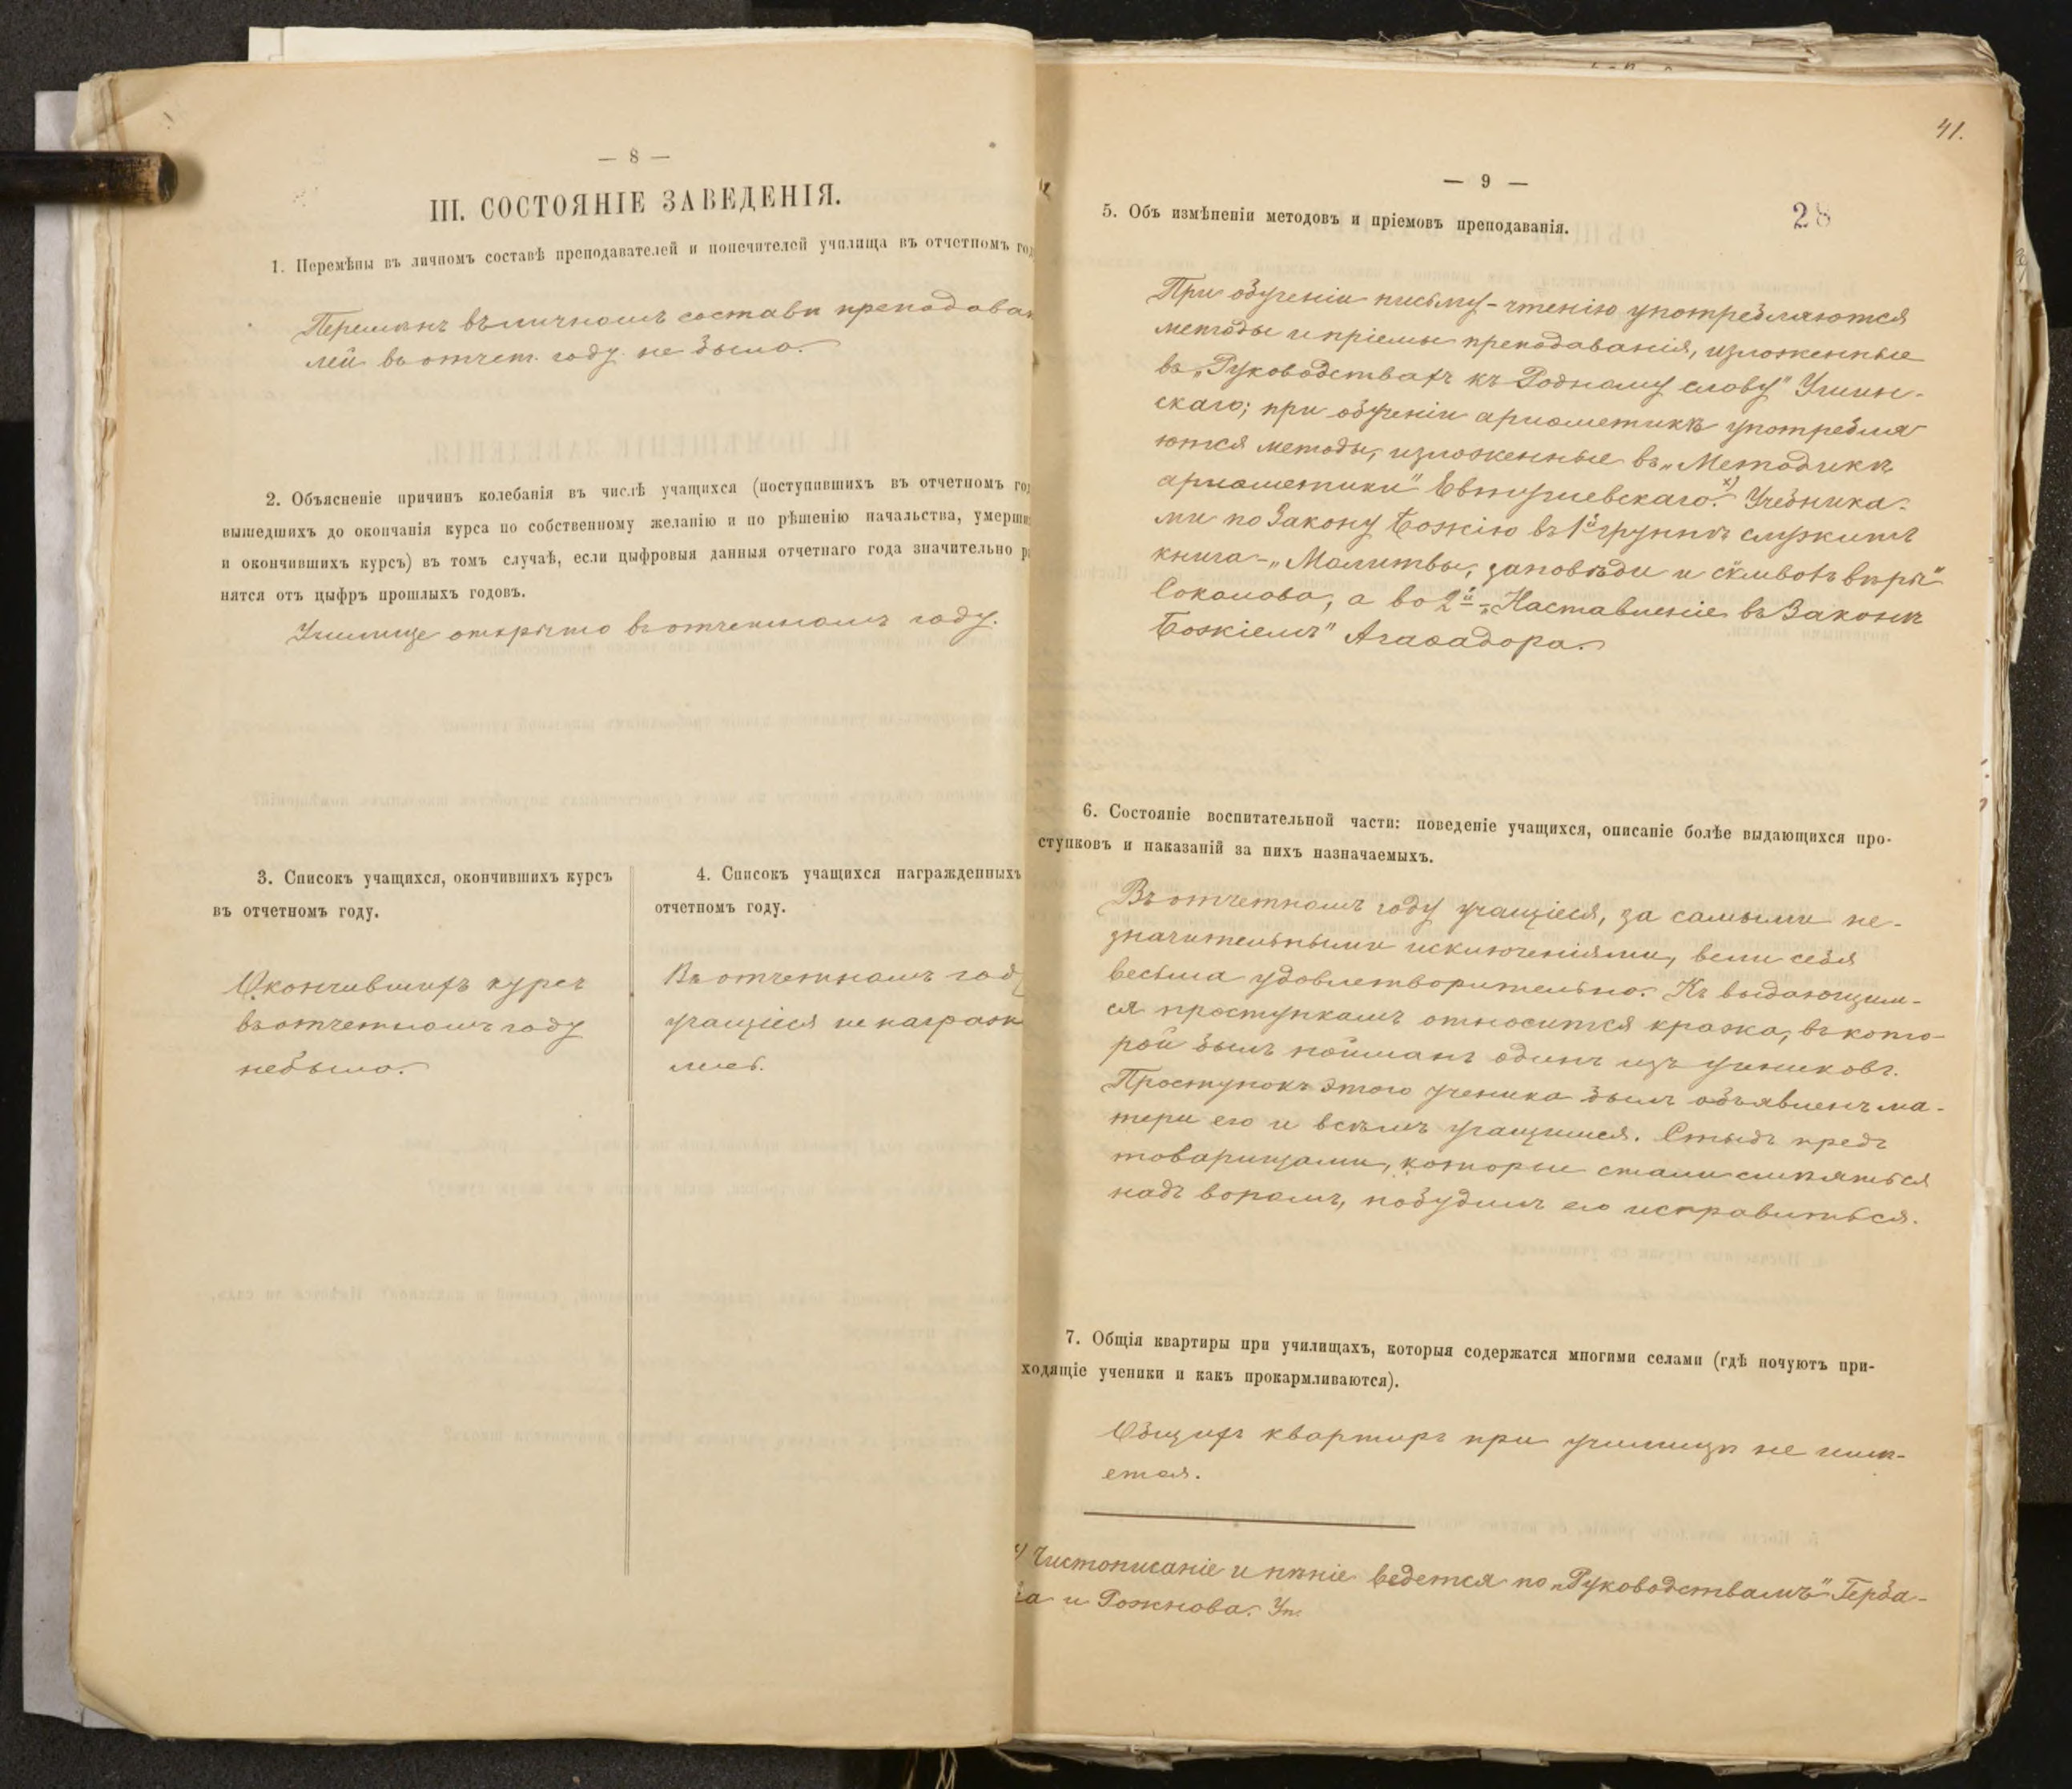 — 8 —
III. СОСТОЯНІЕ ЗАВЕДЕНІЯ.
1. Перемѣны въ личномъ составѣ преподавателей и попечителей училища въ отчетномъ год
Перемѣнъ въ личномъ составѣ преподават
лей въ отчет. году не было.
2. Объясненіе причинъ колебанія въ числѣ учащихся (поступившихъ въ отчетномъ год
вышедшихъ до окончанія курса по собственному желанію и по рѣшенію начальства, умерши
и окончившихъ курсъ) въ томъ случаѣ, если цыфровыя данныя отчетнаго года значительно р
нятся отъ цыфръ прошлыхъ годовъ.
Училище открыто въ отчетномъ году.
3. Списокъ учащихся, окончившихъ курсъ
въ отчетномъ году.
Окончившихъ курсъ
въ отчетномъ году
не было.
4. Списокъ учащихся награжденныхъ
отчетномъ году.
Въ отчетномъ год
учащіеся не награж
лись.
41.
— 9 —
28
5. Объ измѣненіи методовъ и пріемовъ преподаванія.
При обученіи письму-чтенію употребляются
методы и пріемы преподаванія, изложенные
въ „Руководствахъ къ Родному слову" Ушин-
скаго; при обученіи ариѳметикѣ употребля
ются методы, изложенные въ „Методикѣ
ариѳметики" Евтушевскаго. х) Учебника-
ми по Закону Божію въ 1й группѣ служитъ
книга - „Молитвы, заповѣди и сѵмволъ вѣры"
Соколова, а во 2й - „Наставленіе въ Законѣ
Божіемъ" Агаѳодора.
6. Состояніе воспитательной части: поведеніе учащихся, описаніе болѣе выдающихся про-
ступковъ и наказаній за нихъ назначаемыхъ.
Въ отчетномъ году учащіеся, за самыми не-
значительными исключеніями, вели себя
весьма удовлетворительно. Къ выдающим-
ся проступкамъ относится кража, въ кото-
рой былъ пойманъ одинъ изъ учениковъ.
Проступокъ этого ученика былъ объявленъ ма-
тери его и всѣмъ учащимся. Стыдъ предъ
товарищами, которые стали смѣяться
надъ воромъ, побудилъ его исправиться.
7. Общія квартиры при училищахъ, которыя содержатся многими селами (гдѣ ночуютъ при-
ходящіе ученики и какъ прокармливаются).
Общихъ квартиръ при училищѣ не имѣ-
ется.
х) Чистописаніе и пѣніе ведется по „Руководствамъ" Герба-
ха и Рожнова. Уч.